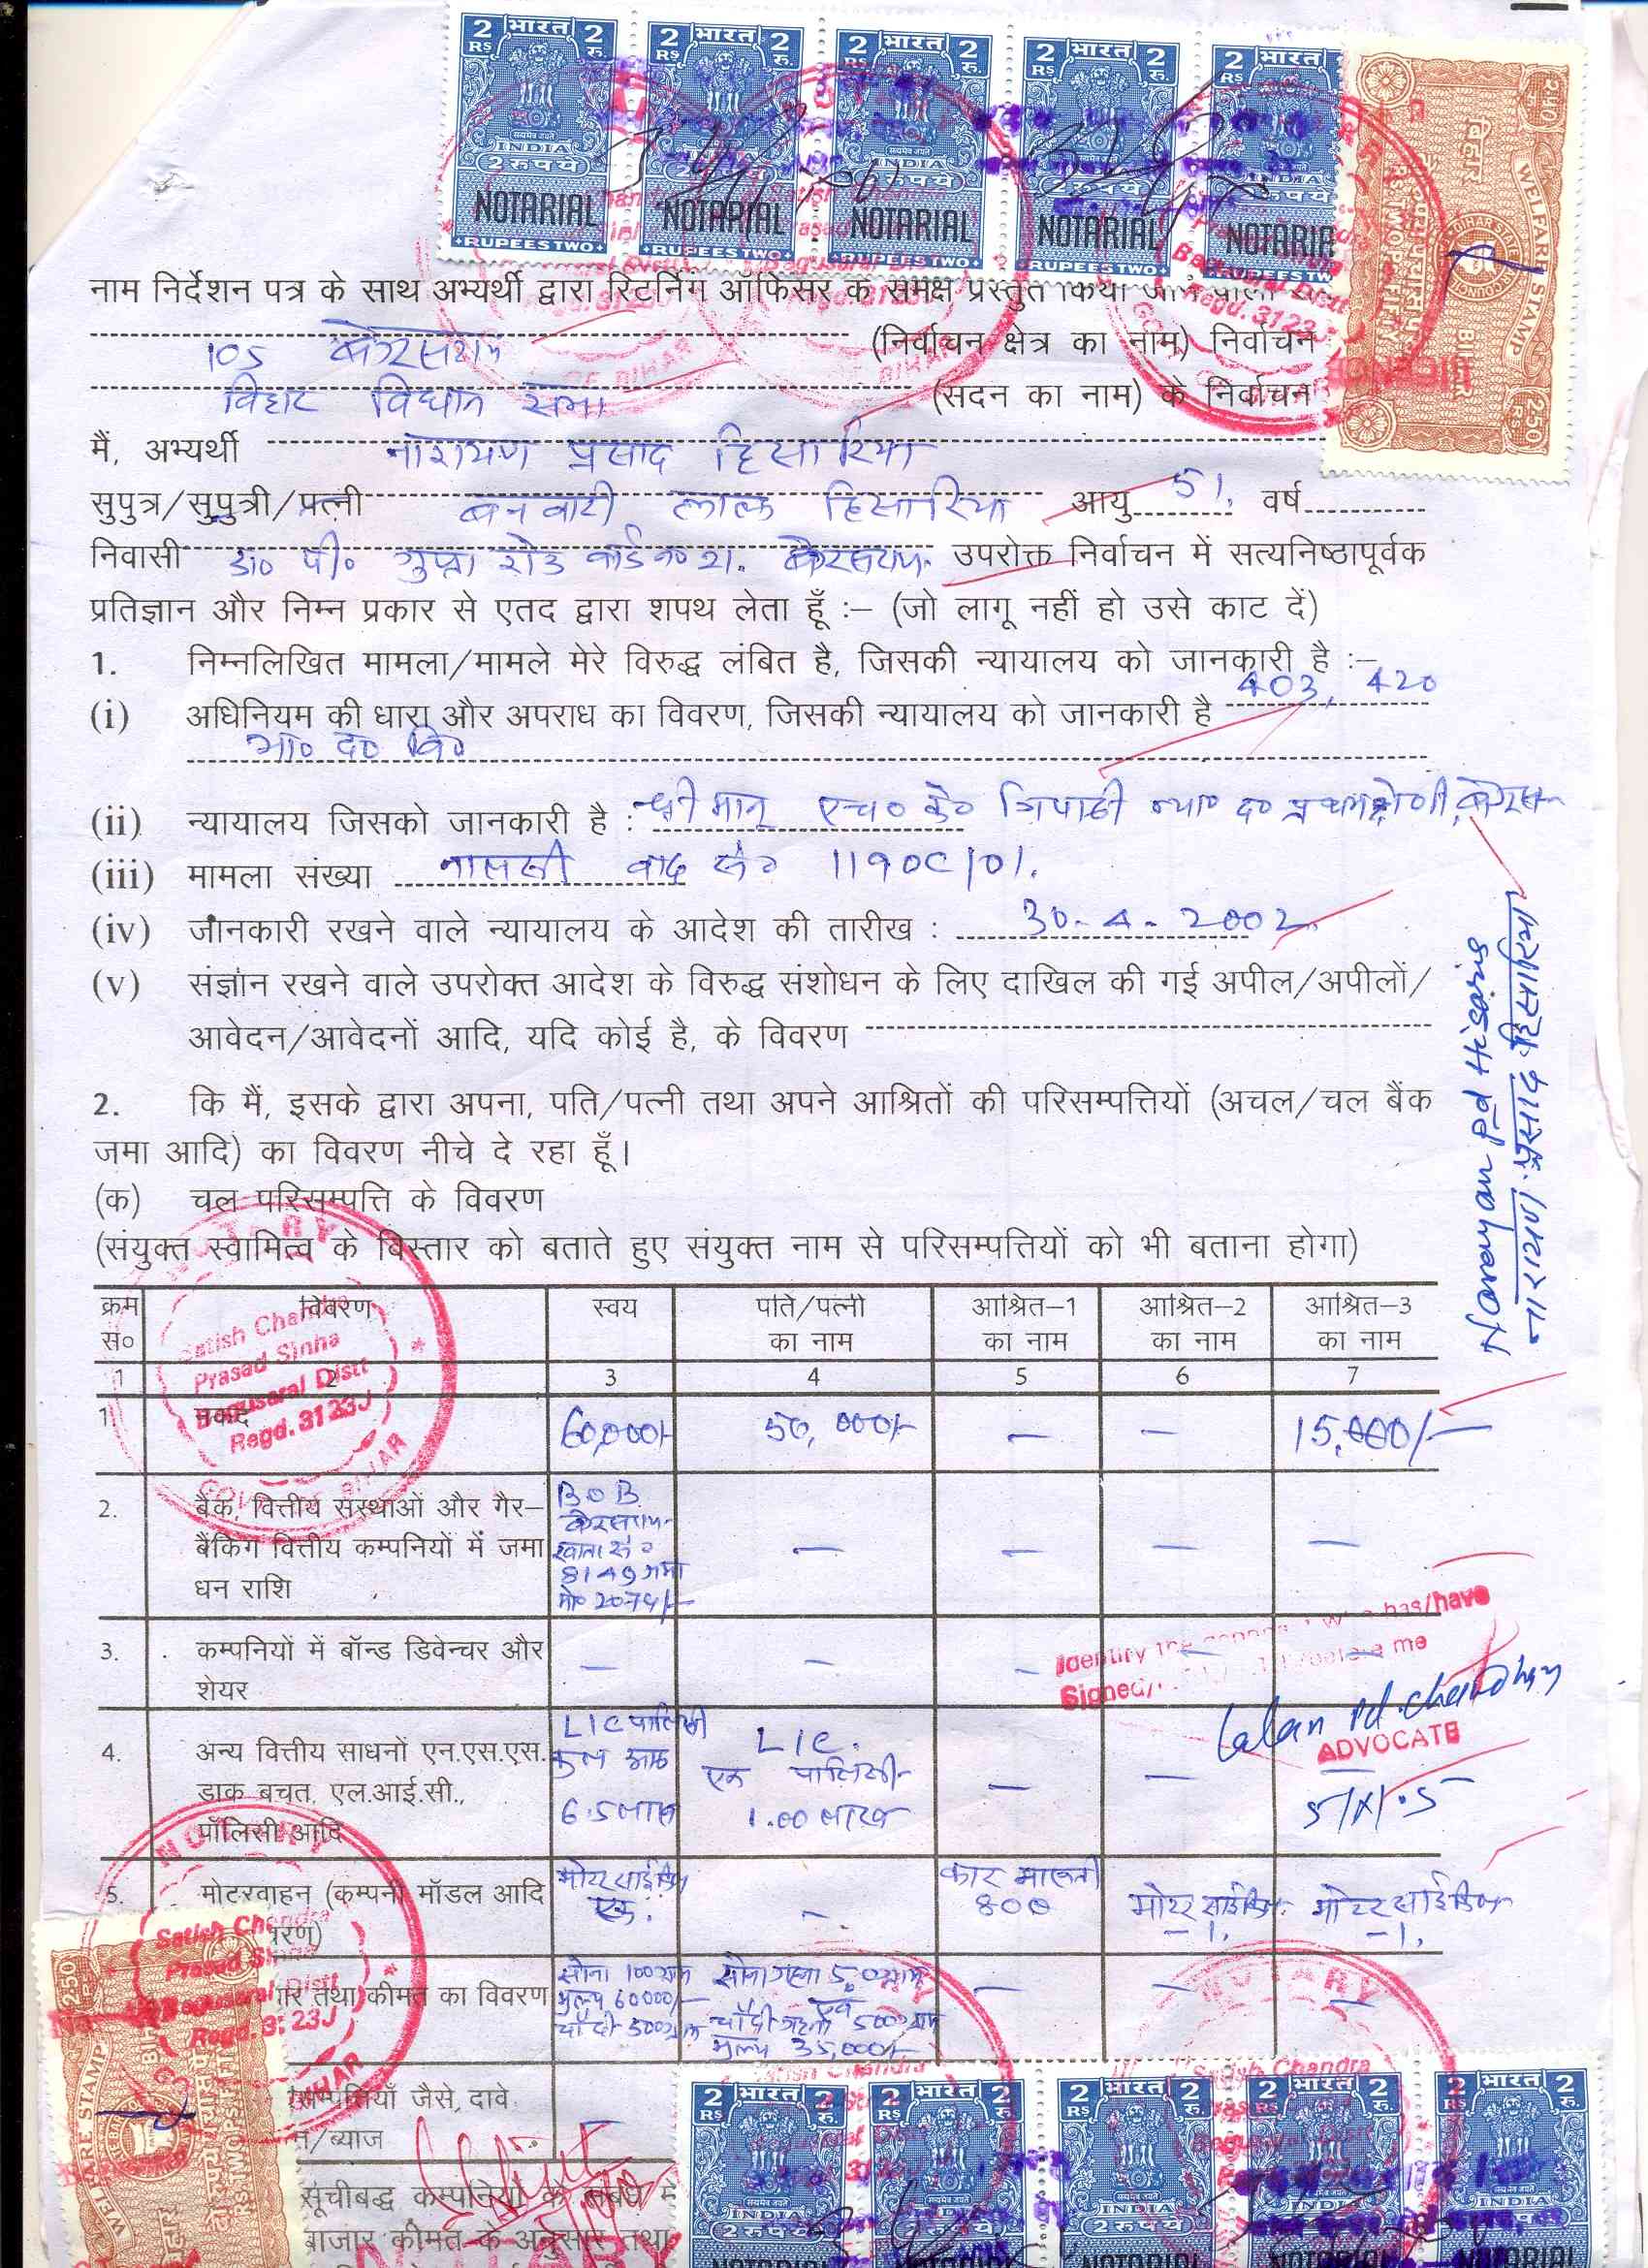 2 भारत 2 2 भारत 2 2 भारत 2 2 भारत 2 2 भारत
RS रु. RS रु. RS रु. RS रु. RS
INDIA
2 रुपये
NOTARIAL NOTARIAL NOTARIAL NOTARIAL NOTARIA
RUPEES TWO RUPEES TWO RUPEES TWO RUPEES TWO
WELFARE STAMP
बिहार
BIHAR
2.50
नाम निर्देशन पत्र के साथ अभ्यर्थी द्वारा रिटर्निंग ऑफिसर के समक्ष प्रस्तुत किया जाने वाला
105 (निर्वाचन क्षेत्र का नाम) निर्वाचन
विधान सभा (सदन का नाम) के निर्वाचन
मैं, अभ्यर्थी नारायण प्रसाद हिसारिया
सुपुत्र/सुपुत्री/पत्नी बनवारी लाल हिसारिया आयु 51. वर्ष
निवासी डा० पी० गुप्ता रोड उपरोक्त निर्वाचन में सत्यनिष्ठापूर्वक
प्रतिज्ञान और निम्न प्रकार से एतद द्वारा शपथ लेता हूँ :– (जो लागू नहीं हो उसे काट दें)
1. निम्नलिखित मामला/मामले मेरे विरुद्ध लंबित है, जिसकी न्यायालय को जानकारी है :–
(i) अधिनियम की धारा और अपराध का विवरण, जिसकी न्यायालय को जानकारी है 403, 420
भा० द० वि०
(ii) न्यायालय जिसको जानकारी है : श्री मान् एच० के० त्रिपाठी न्या० द०
(iii) मामला संख्या वाद सं० 1190C/01.
(iv) जानकारी रखने वाले न्यायालय के आदेश की तारीख : 30-4-2002
(v) संज्ञान रखने वाले उपरोक्त आदेश के विरुद्ध संशोधन के लिए दाखिल की गई अपील/अपीलों/
आवेदन/आवेदनों आदि, यदि कोई है, के विवरण
Narayan pd Hisaria
नारायण प्रसाद हिसारिया
2. कि मैं, इसके द्वारा अपना, पति/पत्नी तथा अपने आश्रितों की परिसम्पत्तियों (अचल/चल बैंक
जमा आदि) का विवरण नीचे दे रहा हूँ।
(क) चल परिसम्पत्ति के विवरण
(संयुक्त स्वामित्व के विस्तार को बताते हुए संयुक्त नाम से परिसम्पत्तियों को भी बताना होगा)
क्रम विवरण स्वय पति/पत्नी आश्रित–1 आश्रित–2 आश्रित–3
सं० का नाम का नाम का नाम का नाम
1 2 3 4 5 6 7
1. नकद 60,000/- 50,000/- — — 15,000/-
NOTARY
Satish Chandra
Prasad Sinha
Begusarai Distt
Regd. 3123J
GOVT. OF BIHAR
2. बैंक, वित्तीय संस्थाओं और गैर– BOB
बैंकिंग वित्तीय कम्पनियों में जमा खाता सं० — — — —
धन राशि 8149 जमा
3. कम्पनियों में बॉन्ड डिवेन्चर और
शेयर — — — — —
Identify the who has/have
Signed before me
Lalan Pd. Chaudhary
ADVOCATE
5/XI.5
4. अन्य वित्तीय साधनों एन.एस.एस. LIC पालिसी LIC.
डाक बचत, एल.आई.सी., कुल आठ एक पालिसी — —
पॉलिसी आदि 6.5 लाख 1.00 लाख
5. मोटरवाहन (कम्पनी मॉडल आदि मोटर साईकिल — कार मारूती मोटर साईकिल मोटर साईकिल
वरण) एक. 800 -1. -1.
तथा कीमत का विवरण सोना 100 ग्राम सोना गहना — — —
मुल्य 60000/- एवं
चाँदी 500 ग्राम चाँदी गहना 500 ग्राम
मुल्य 35,000/-
NOTARY
Satish Chandra
Prasad
Regd. 3123J
सम्पत्तियाँ जैसे, दावे
/ब्याज
सूचीबद्ध कम्पनियों के संबंध में
बाजार कीमत के अनुसार तथा
NOTARY
WELFARE STAMP
2.50
2 भारत 2 2 भारत 2 2 भारत 2 2 भारत 2 2 भारत 2
RS रु. RS रु. RS रु. RS रु. RS रु.
INDIA
2 रुपये
NOTARIAL